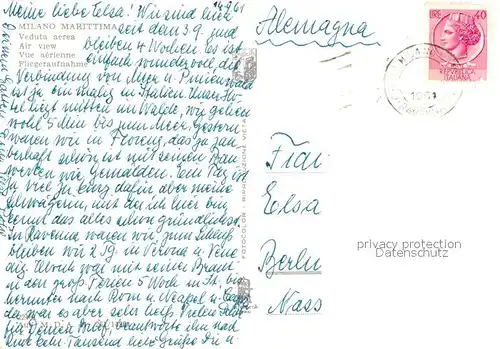 14.9.61
Meine liebe Elsa! Wir sind hier
seit dem 3.9. und
bleiben 4 Wochen. Es ist
einfach wundervoll, die
Verbindung von Meer u. Pinienwald
ist ja einmalig in Italien. Unser Ho-
tel liegt mitten im Walde, wir gehen
wohl 5 Min bis zum Meer. Gestern
waren wir in Florenz, das ja zau-
berhaft schön ist mit seinen Bau-
werken wie Gemälden. Ein Tag ist
ja viel zu kurz dafür aber meine
Schwägerin, mit der ich hier bin
kennt das alles schon gründlichst.
In Ravenna waren wir, zum Schluß
bleiben wir 2 Tg. in Verona u. Vene-
dig. Ulrich war mit seiner Braut
in den groß. Ferien 5 Woch. in It., bis
herunter nach Rom u. Neapel u. Capri
da war es aber sehr heiß. Vielen Dank
für Deinen Brief, beantworte ihn nach
Rück. Sehr. Tausend liebe Grüße Dir u.
MILANO MARITTIMA
Veduta aerea
Air view
Vue aérienne
Fliegeraufnahme
FOTOCOLOR - RIPRODUZIONE VIETATA
Alemagna
LIRE 40
REPUBBLICA
ITALIANA
Frau
Elsa
Berlin
Nass
privacy protection
Datenschutz